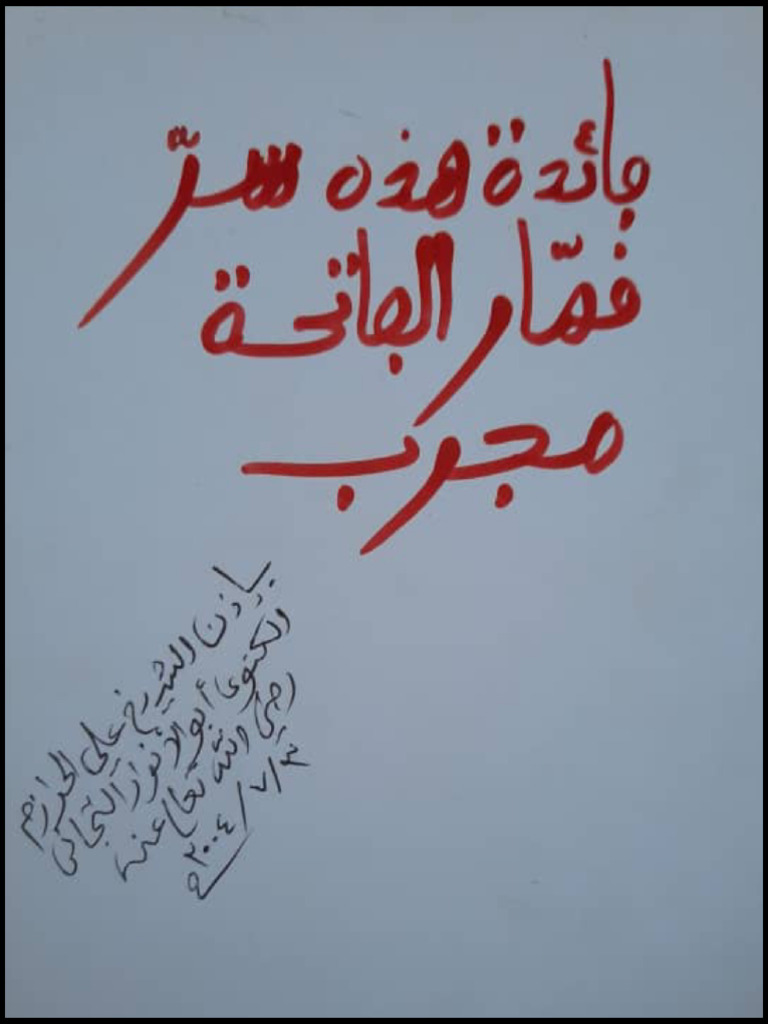 فائدة هذه سرّ
قهّار الفاتحة
مجرب
بإذن الشيخ علي الحرازم
الكنوى أبو الأنوار التجانى
رضي الله تعا عنه
٣/٧/٢٠٠٤م